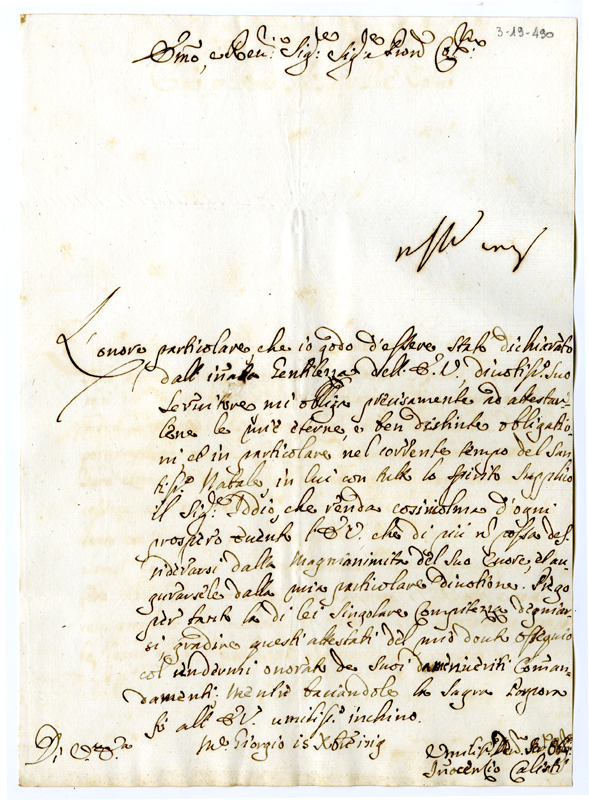 3-19-490
Emo, e Reu: Sig: Sig: e Pron Col:
L'onore particolare, che io godo d'essere stato dichiarato
dall'innata Gentilezza dell'E: V: diuotiss: suo
seruitore mi obliga precisamente ad attestar-
le mie eterne, e ben distinte obligatio-
ni et in particolare nel corrente tempo del San-
tiss: Natale, in cui con tutto lo spirito supplico
il Sig: Iddio, che renda cosi colma d'ogni
prospero euento l'E: V: che di più nõ possa des-
iderarsi dalla Magnianimità del suo Cuore, et au-
gurarsele dalla mia particolare diuotione. Prego
per tanto la di lei singolare
si gradire questi attestati del mio douuto ossequio
col rendermi onorato de suoi Coman-
damenti. Mentre baciandole la Sagra Porpora
fò all'E: V: umiliss: inchino.
Di V: E:
Giorgio 15
Umiliss:
Inocenzio Calisti